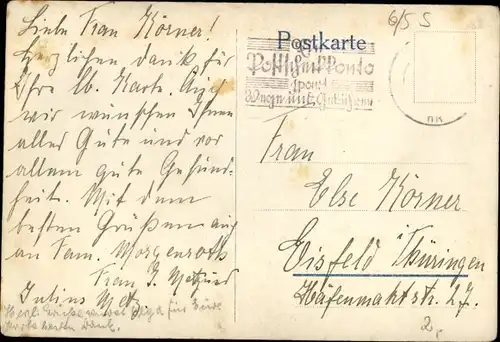 Liebe Frau Körner!
Herzlichen dank für
Ihre lb. Karte. Auch
wir wünschen Ihnen
alles Gute und vor
allem gute Gesund-
heit. Mit dem
besten Grüßen auch
an Fam. Morgenroth
Frau J. Metz und
Julius Metz
für Eure
Karte besten Dank.
6/5 S
Postkarte
Ein
Postscheckkonto
spart
Wege und Gebühren
Frau
Else Körner
Eisfeld i Thüringen
Häfenmarktstr. 27.
2,